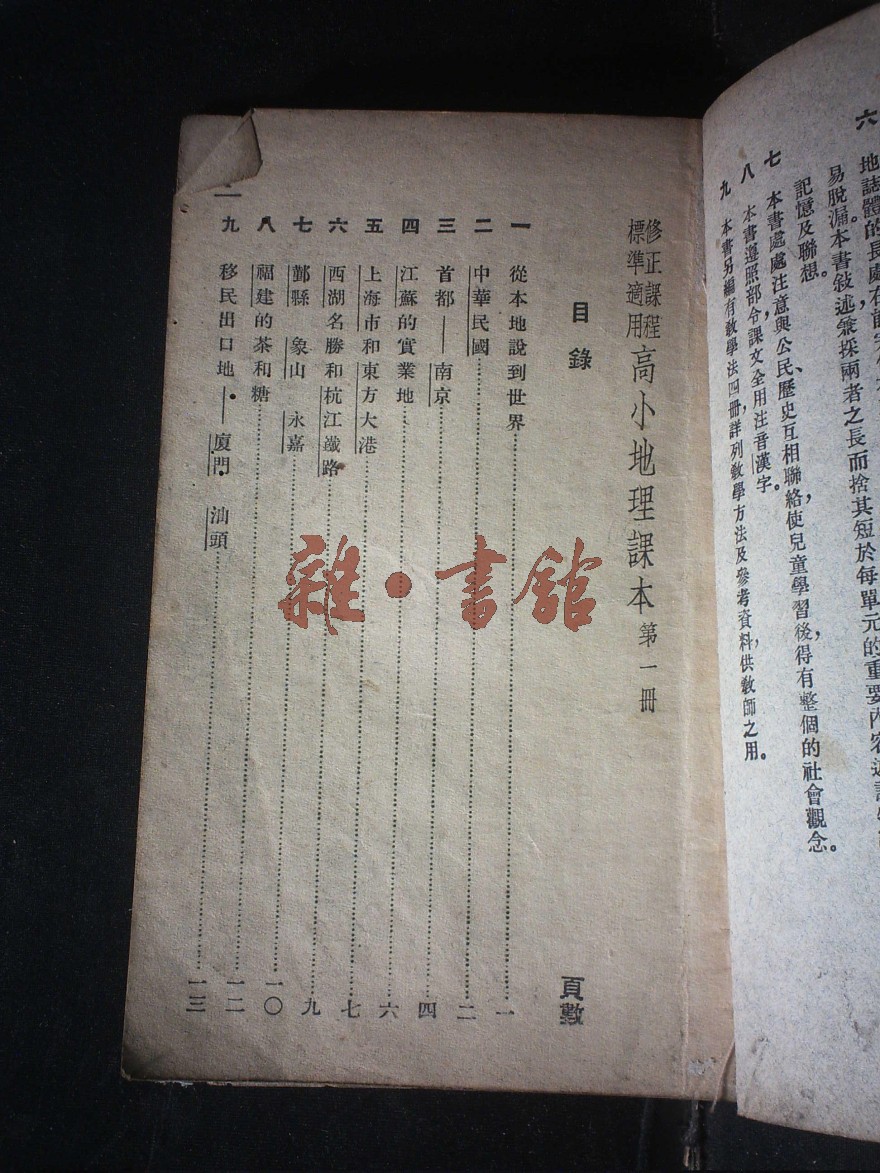 六
地誌體的長處在
易脫漏。本書敍述，兼採兩者之長而捨其短，於每單元的重要內容
記憶及聯想。
七 本書處處注意與公民、歷史互相聯絡，使兒童學習後，得有整個的社會觀念。
八 本書遵照部令，課文全用注音漢字。
九 本書另編有教學法四冊，詳列教學方法及參考資料，供教師之用。
修正課程標準適用 高小地理課本 第一冊
目錄 頁數
一 從本地說到世界……一
二 中華民國……二
三 首都——南京……四
四 江蘇的實業地……六
五 上海市和東方大港……七
六 西湖名勝和杭江鐵路……九
七 鄞縣 象山 永嘉……一〇
八 福建的茶和糖……一二
九 移民出口地——廈門 汕頭……一三
雜·書館